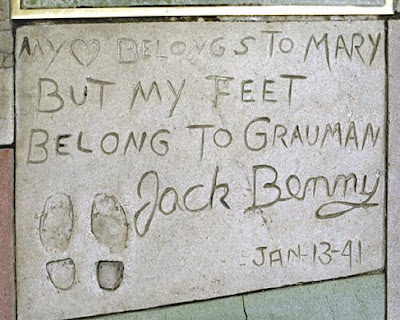 MY ♡ BELONGS TO MARY
BUT MY FEET
BELONG TO GRAUMAN
Jack Benny
JAN-13-41